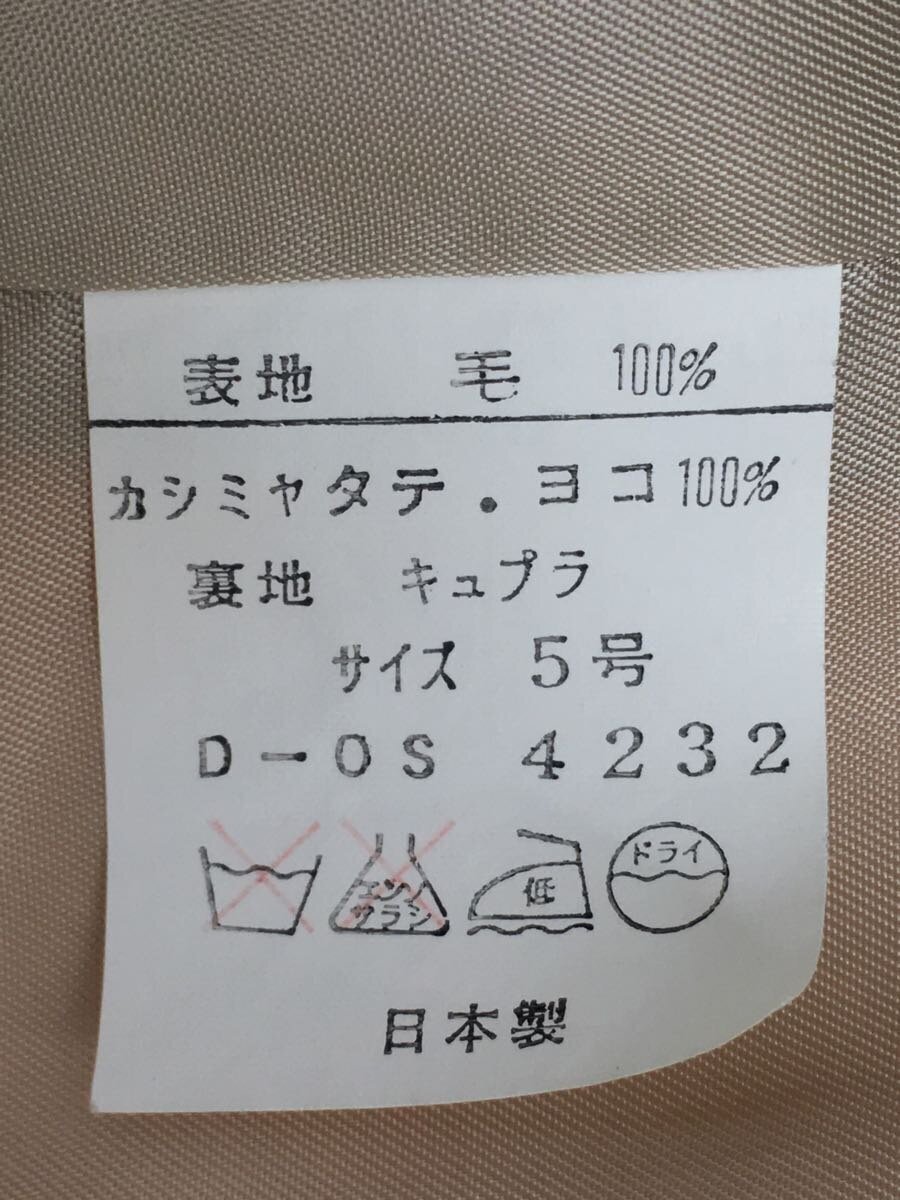 表地 毛 100%
カシミヤタテ.ヨコ100%
裏地 キュプラ
サイズ 5号
D-OS 4232
エンソ
サラシ
低
ドライ
日本製